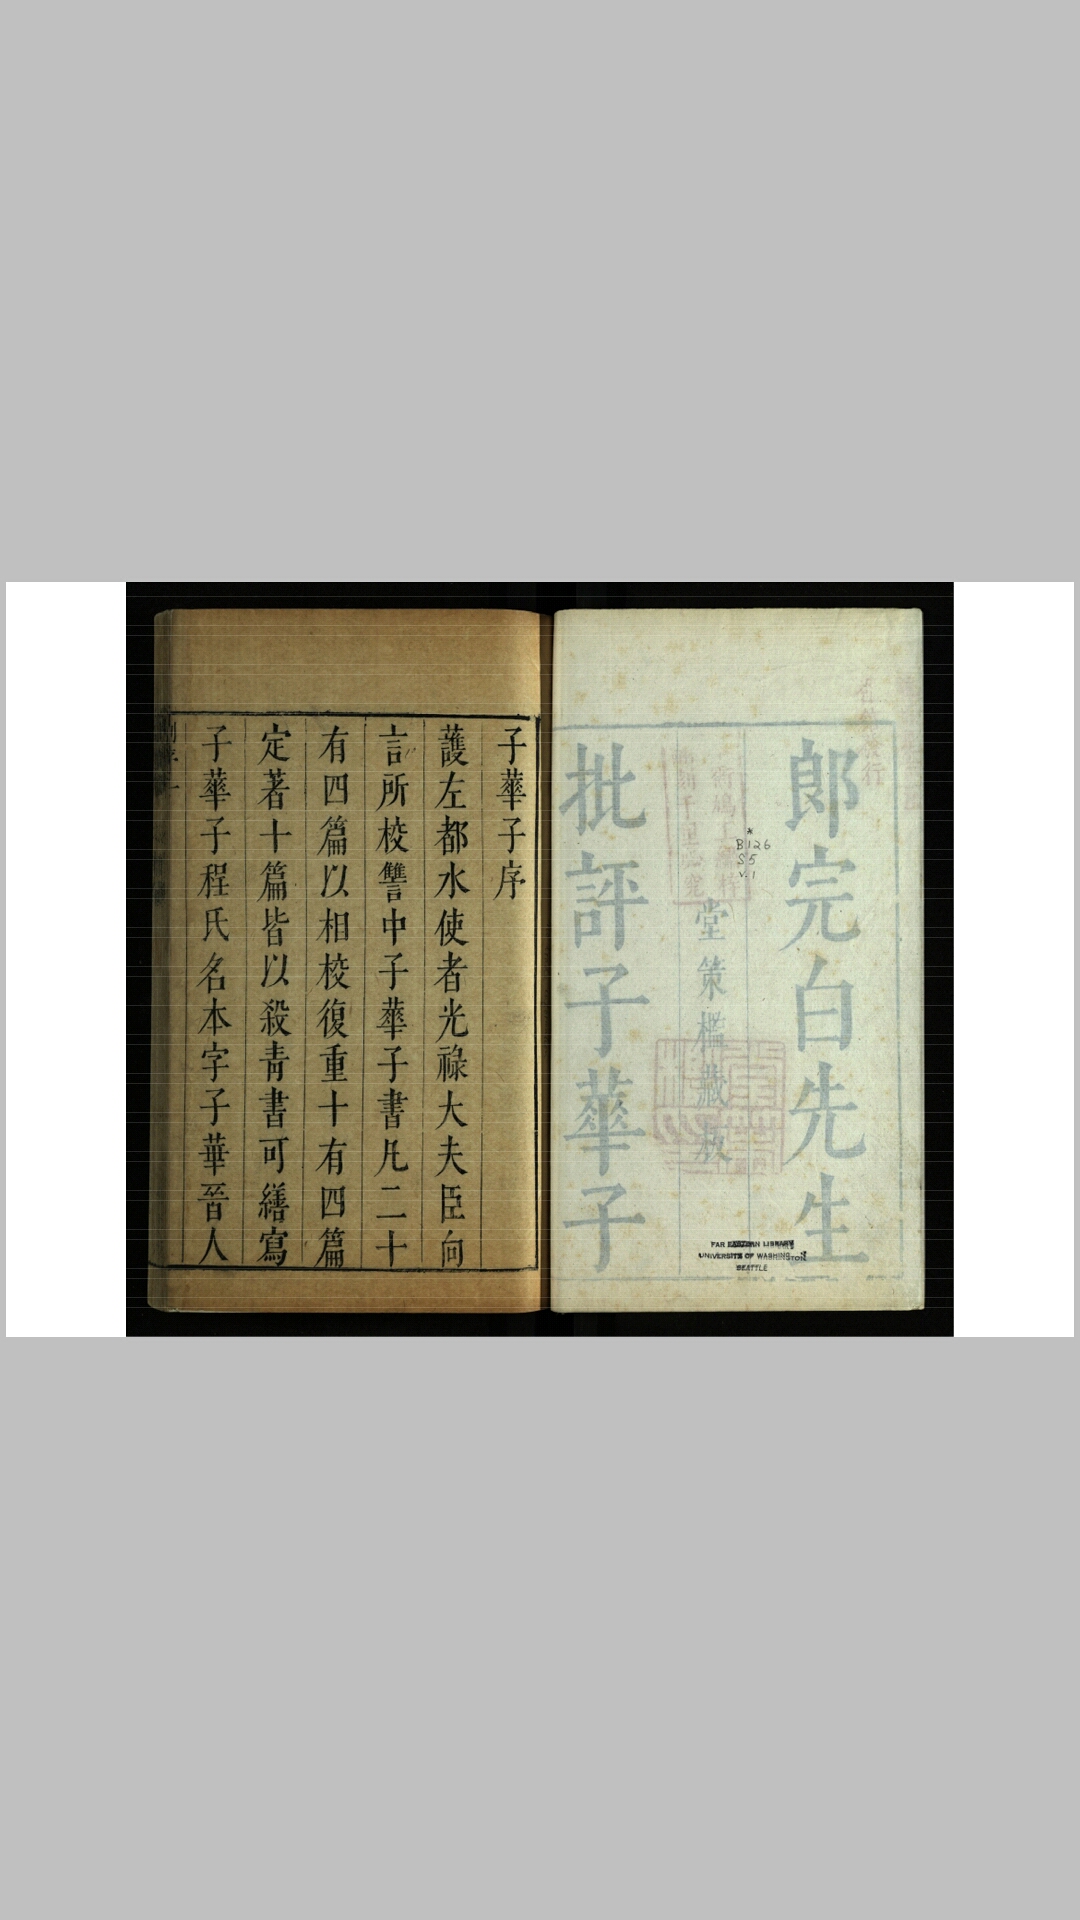 郎完白先生
堂策檻藏板
批評子華子
*
B126
S5
v.1
FAR EASTERN LIBRARY
UNIVERSITY OF WASHINGTON
SEATTLE
子華子序
護左都水使者光祿大夫臣向
言所校讐中子華子書凡二十
有四篇以相校復重十有四篇
定著十篇皆以殺青書可繕寫
子華子程氏名本字子華晉人